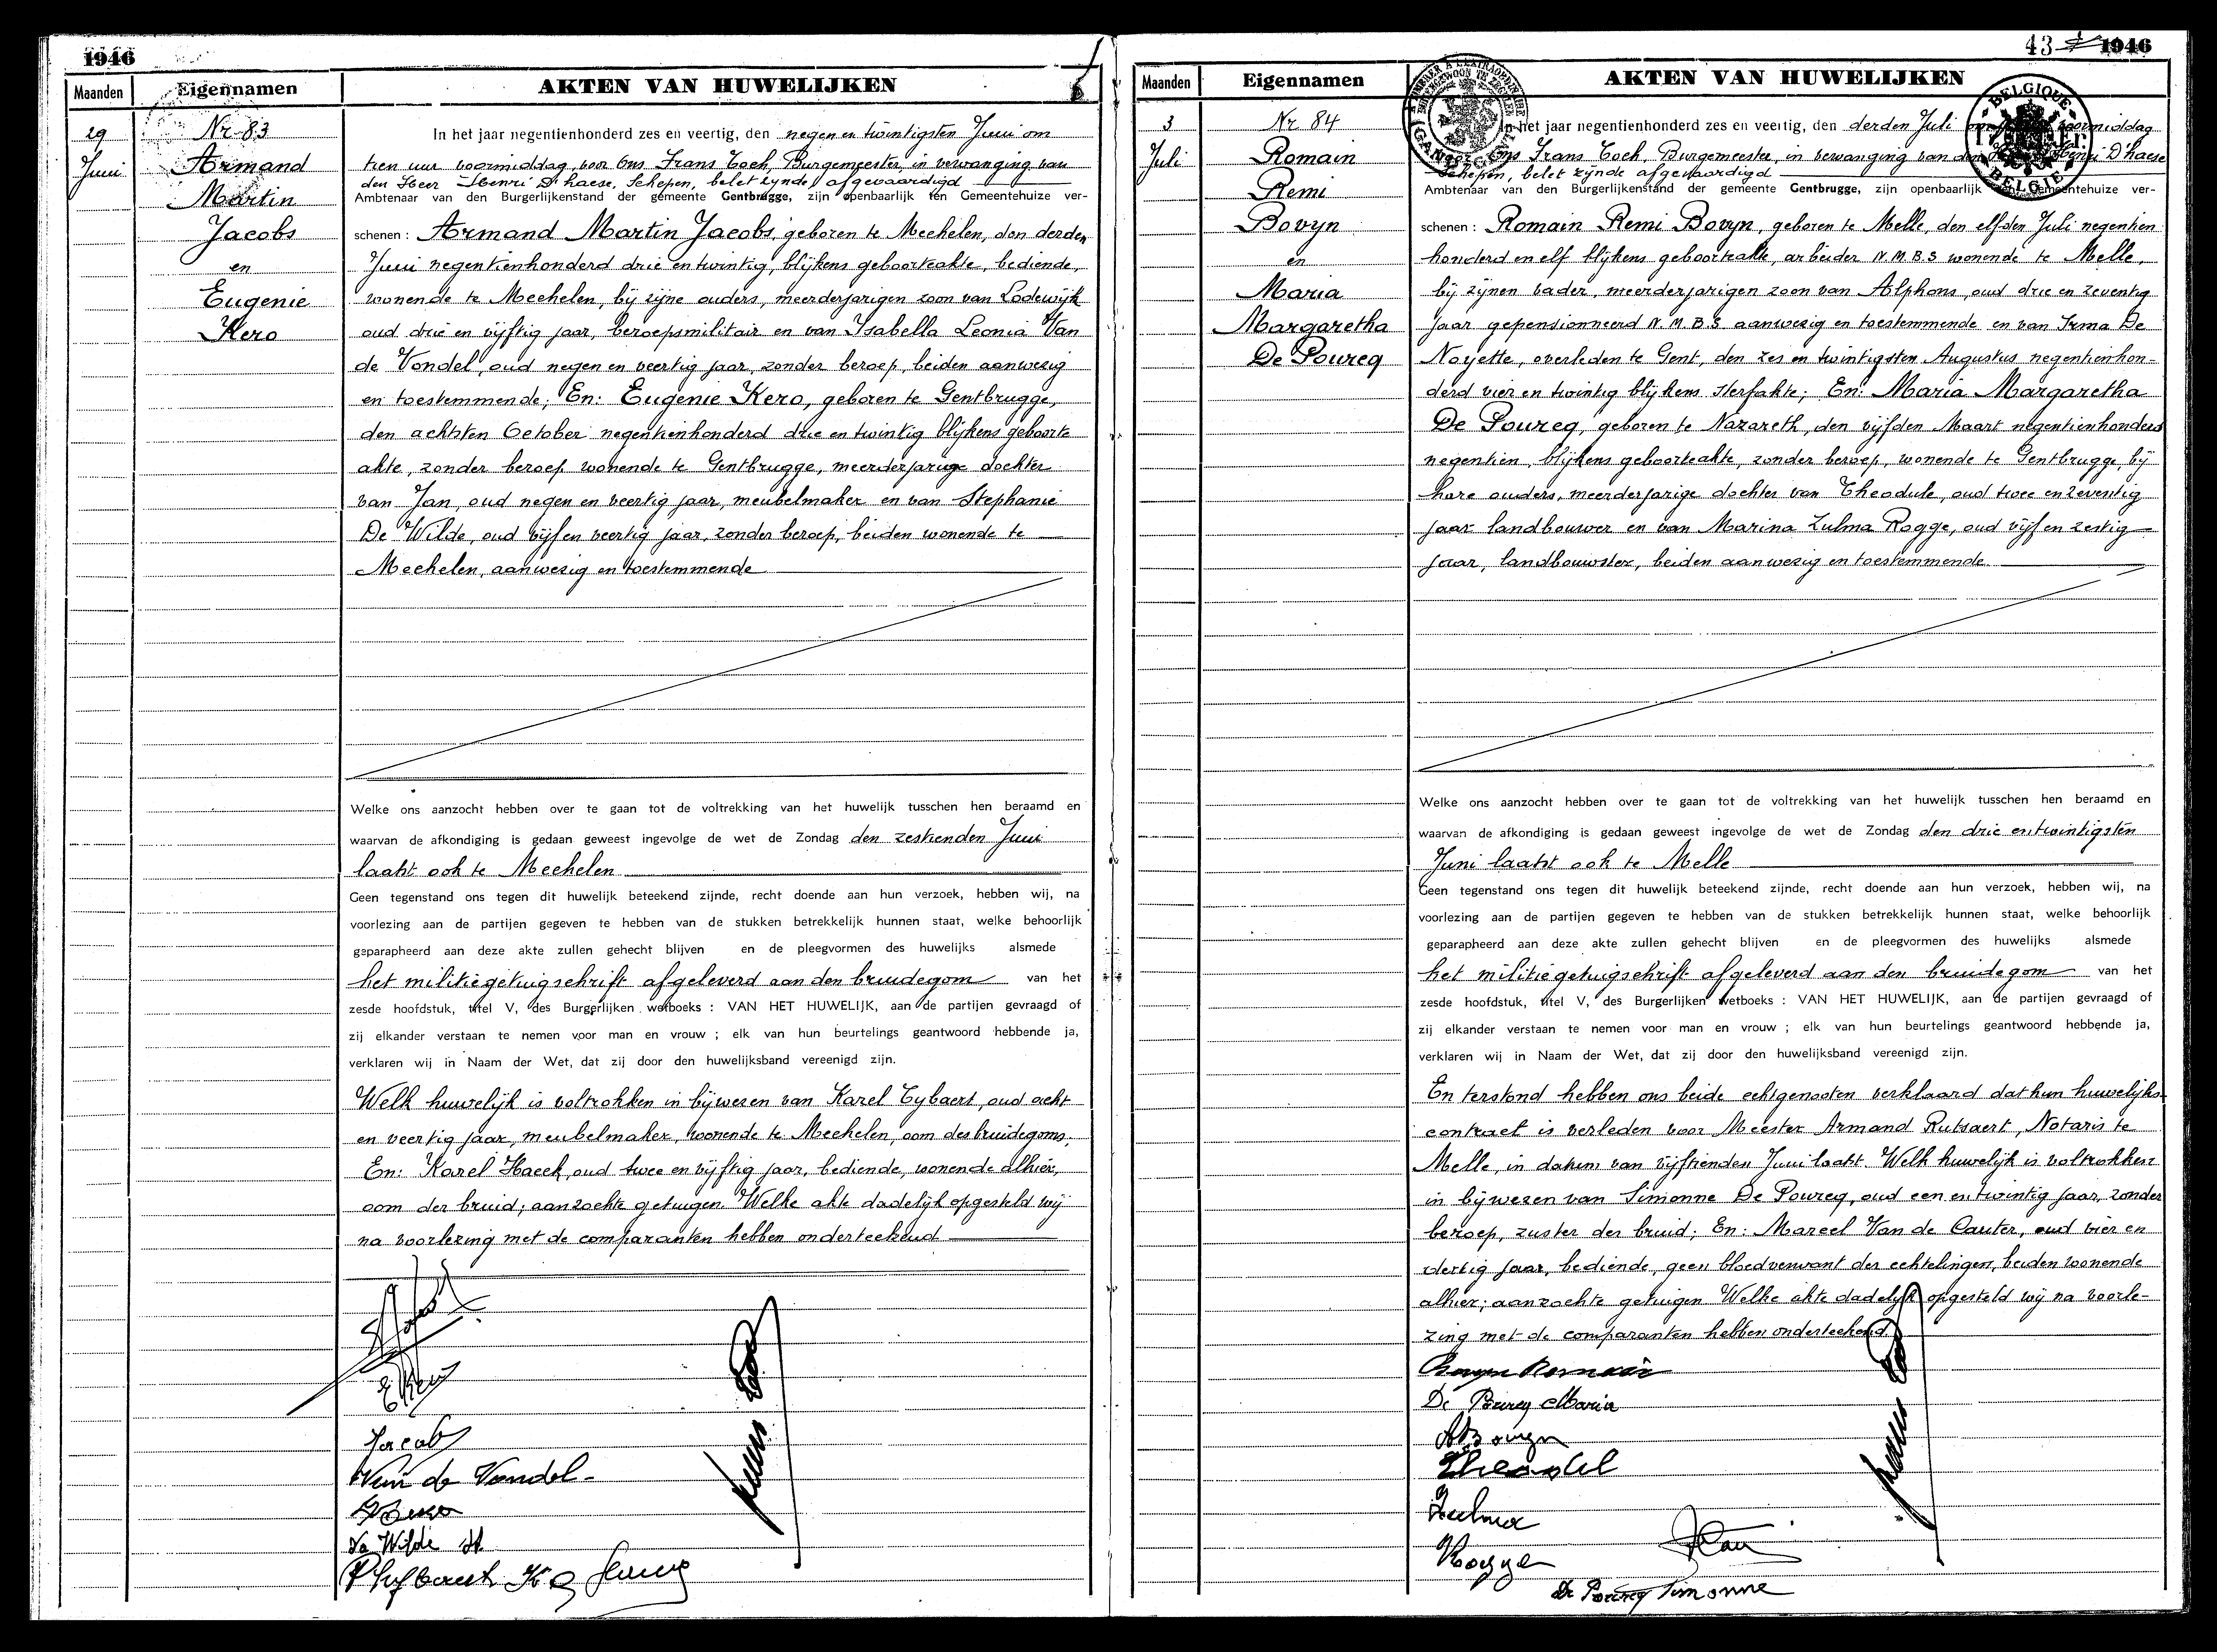 1946
Maanden
Eigennamen
AKTEN VAN HUWELIJKEN
29
Juni
Nr 83
Armand
Martin
Jacobs
en
Eugenie
Kero
In het jaar negentienhonderd zes en veertig, den negen en twintigsten Juni om
tien uur voormiddag, voor Ons Frans Coeh, Burgemeester, in vervanging van
den Heer Henri D'haese, Schepen, belet zynde, afgevaardigd
Ambtenaar van den Burgerlijkenstand der gemeente Gentbrugge, zijn openbaarlijk ten Gemeentehuize ver-
schenen : Armand Martin Jacobs, geboren te Mechelen, den derden
Juni negentienhonderd drie en twintig, blijkens geboorteakte, bediende,
wonende te Mechelen, bij zijne ouders, meerderjarigen zoon van Lodewijk
oud drie en vijftig jaar, beroepsmilitair en van Isabella Leonia Van
de Vondel, oud negen en veertig jaar, zonder beroep, beiden aanwezig
en toestemmende; En: Eugenie Kero, geboren te Gentbrugge,
den achtsten October negentienhonderd drie en twintig blijkens geboorte
akte, zonder beroep wonende te Gentbrugge, meerderjarige dochter
van Jan, oud negen en veertig jaar, meubelmaker en van Stephanie
De Wilde, oud vijf en veertig jaar, zonder beroep, beiden wonende te
Mechelen, aanwezig en toestemmende
Welke ons aanzocht hebben over te gaan tot de voltrekking van het huwelijk tusschen hen beraamd en
waarvan de afkondiging is gedaan geweest ingevolge de wet de Zondag den zestienden Juni
laatst ook te Mechelen
Geen tegenstand ons tegen dit huwelijk beteekend zijnde, recht doende aan hun verzoek, hebben wij, na
voorlezing aan de partijen gegeven te hebben van de stukken betrekkelijk hunnen staat, welke behoorlijk
geparapheerd aan deze akte zullen gehecht blijven en de pleegvormen des huwelijks alsmede
het militiegetuigschrift afgeleverd aan den bruidegom van het
zesde hoofdstuk, titel V, des Burgerlijken wetboeks : VAN HET HUWELIJK, aan de partijen gevraagd of
zij elkander verstaan te nemen voor man en vrouw ; elk van hun beurtelings geantwoord hebbende ja,
verklaren wij in Naam der Wet, dat zij door den huwelijksband vereenigd zijn.
Welk huwelijk is voltrokken in bijwezen van Karel Cybaert, oud acht
en veertig jaar, meubelmaker, wonende te Mechelen, oom des bruidegoms,
En: Karel Haeck, oud twee en vijftig jaar, bediende, wonende alhier,
oom der bruid; aanzochte getuigen. Welke akte dadelijk opgesteld wij
na voorlezing met de comparanten hebben onderteekend
Jacobs
Van de Vondel
De Wilde St
43 1946
Maanden
Eigennamen
AKTEN VAN HUWELIJKEN
BELGIQUE
BELGIE
3
Juli
Nr 84
Romain
Remi
Bovyn
en
Maria
Margaretha
De Poureq
In het jaar negentienhonderd zes en veertig, den derden Juli voormiddag
voor Ons Frans Coeh, Burgemeester, in vervanging van den Henri D'haese
Schepen, belet zijnde afgevaardigd
Ambtenaar van den Burgerlijkenstand der gemeente Gentbrugge, zijn openbaarlijk ten Gemeentehuize ver-
schenen : Romain Remi Bovyn, geboren te Melle, den elfden Juli negentien
honderd en elf blijkens geboorteakte, arbeider N.M.B.S wonende te Melle,
bij zijnen vader, meerderjarigen zoon van Alphons, oud drie en zeventig
jaar gepensionneerd N.M.B.S. aanwezig en toestemmende en van Irma De
Noyette, overleden te Gent, den zes en twintigsten Augustus negentienhon-
derd vier en twintig blijkens sterfakte; En: Maria Margaretha
De Poureq, geboren te Nazareth, den vijfden Maart negentienhonderd
negentien, blijkens geboorteakte, zonder beroep, wonende te Gentbrugge, bij
hare ouders, meerderjarige dochter van Theodule, oud twee en zeventig
jaar landbouwer en van Marina Zulma Rogge, oud vijf en zestig
jaar, landbouwster, beiden aanwezig en toestemmende.
Welke ons aanzocht hebben over te gaan tot de voltrekking van het huwelijk tusschen hen beraamd en
waarvan de afkondiging is gedaan geweest ingevolge de wet de Zondag den drie en twintigsten
Juni laatst ook te Melle
Geen tegenstand ons tegen dit huwelijk beteekend zijnde, recht doende aan hun verzoek, hebben wij, na
voorlezing aan de partijen gegeven te hebben van de stukken betrekkelijk hunnen staat, welke behoorlijk
geparapheerd aan deze akte zullen gehecht blijven en de pleegvormen des huwelijks alsmede
het militiegetuigschrift afgeleverd aan den bruidegom van het
zesde hoofdstuk, titel V, des Burgerlijken wetboeks : VAN HET HUWELIJK, aan de partijen gevraagd of
zij elkander verstaan te nemen voor man en vrouw ; elk van hun beurtelings geantwoord hebbende ja,
verklaren wij in Naam der Wet, dat zij door den huwelijksband vereenigd zijn.
En terstond hebben ons beide echtgenooten verklaard dat hun huwelijks-
contract is verleden voor Meester Armand Rutsaert, Notaris te
Melle, in datum van vijftienden Juni laatst. Welk huwelijk is voltrokken
in bijwezen van Simonne De Poureq, oud een en twintig jaar, zonder
beroep, zuster der bruid; En: Marcel Van de Cauter, oud vier en
dertig jaar, bediende, geen bloedverwant der echtelingen, beiden wonende
alhier; aanzochte getuigen Welke akte dadelijk opgesteld wij na voorle-
zing met de comparanten hebben onderteekend.
Bovyn Romain
De Poureq Maria
A Bovyn
Theodul
Zulma
Rogge
De Poureq Simonne